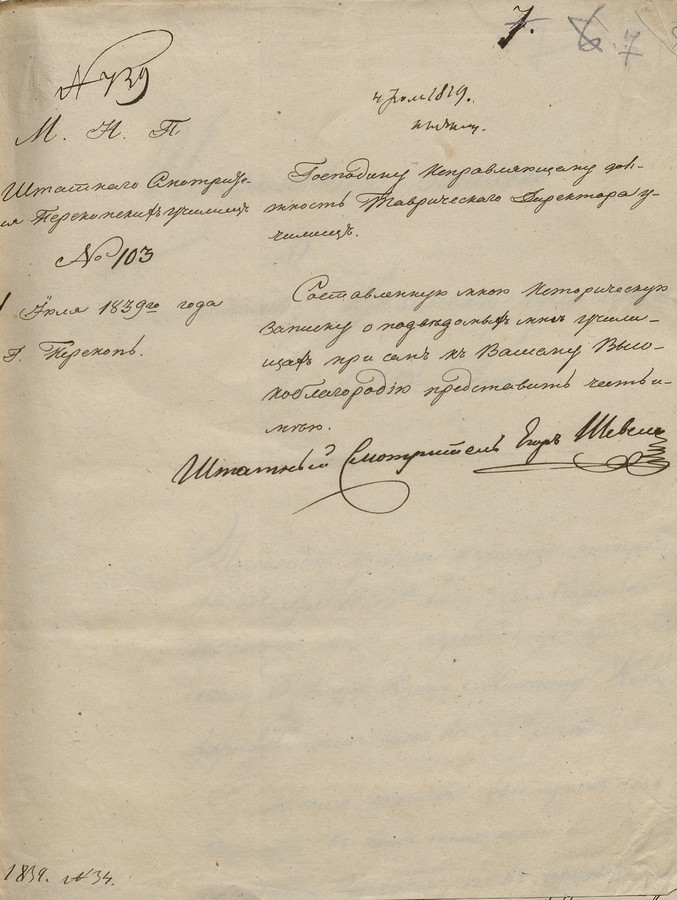 7.
6 7
№ 739
М. Н. П
Штатнаго Смотрите-
ля Перекопскихъ училищъ
№ 103
Іюля 1839го года
Г. Перекопъ.
1819.
Господину Исправляющему дол-
жность Таврическаго Директора у-
чилищъ.
Составленную мною Историческую
записку о подвѣдомыхъ мнѣ учили-
щахъ при семъ къ Вашему Высо-
коблагородію представить честь и-
мѣю.
Штатный Смотритель Егоръ
1839. №34.